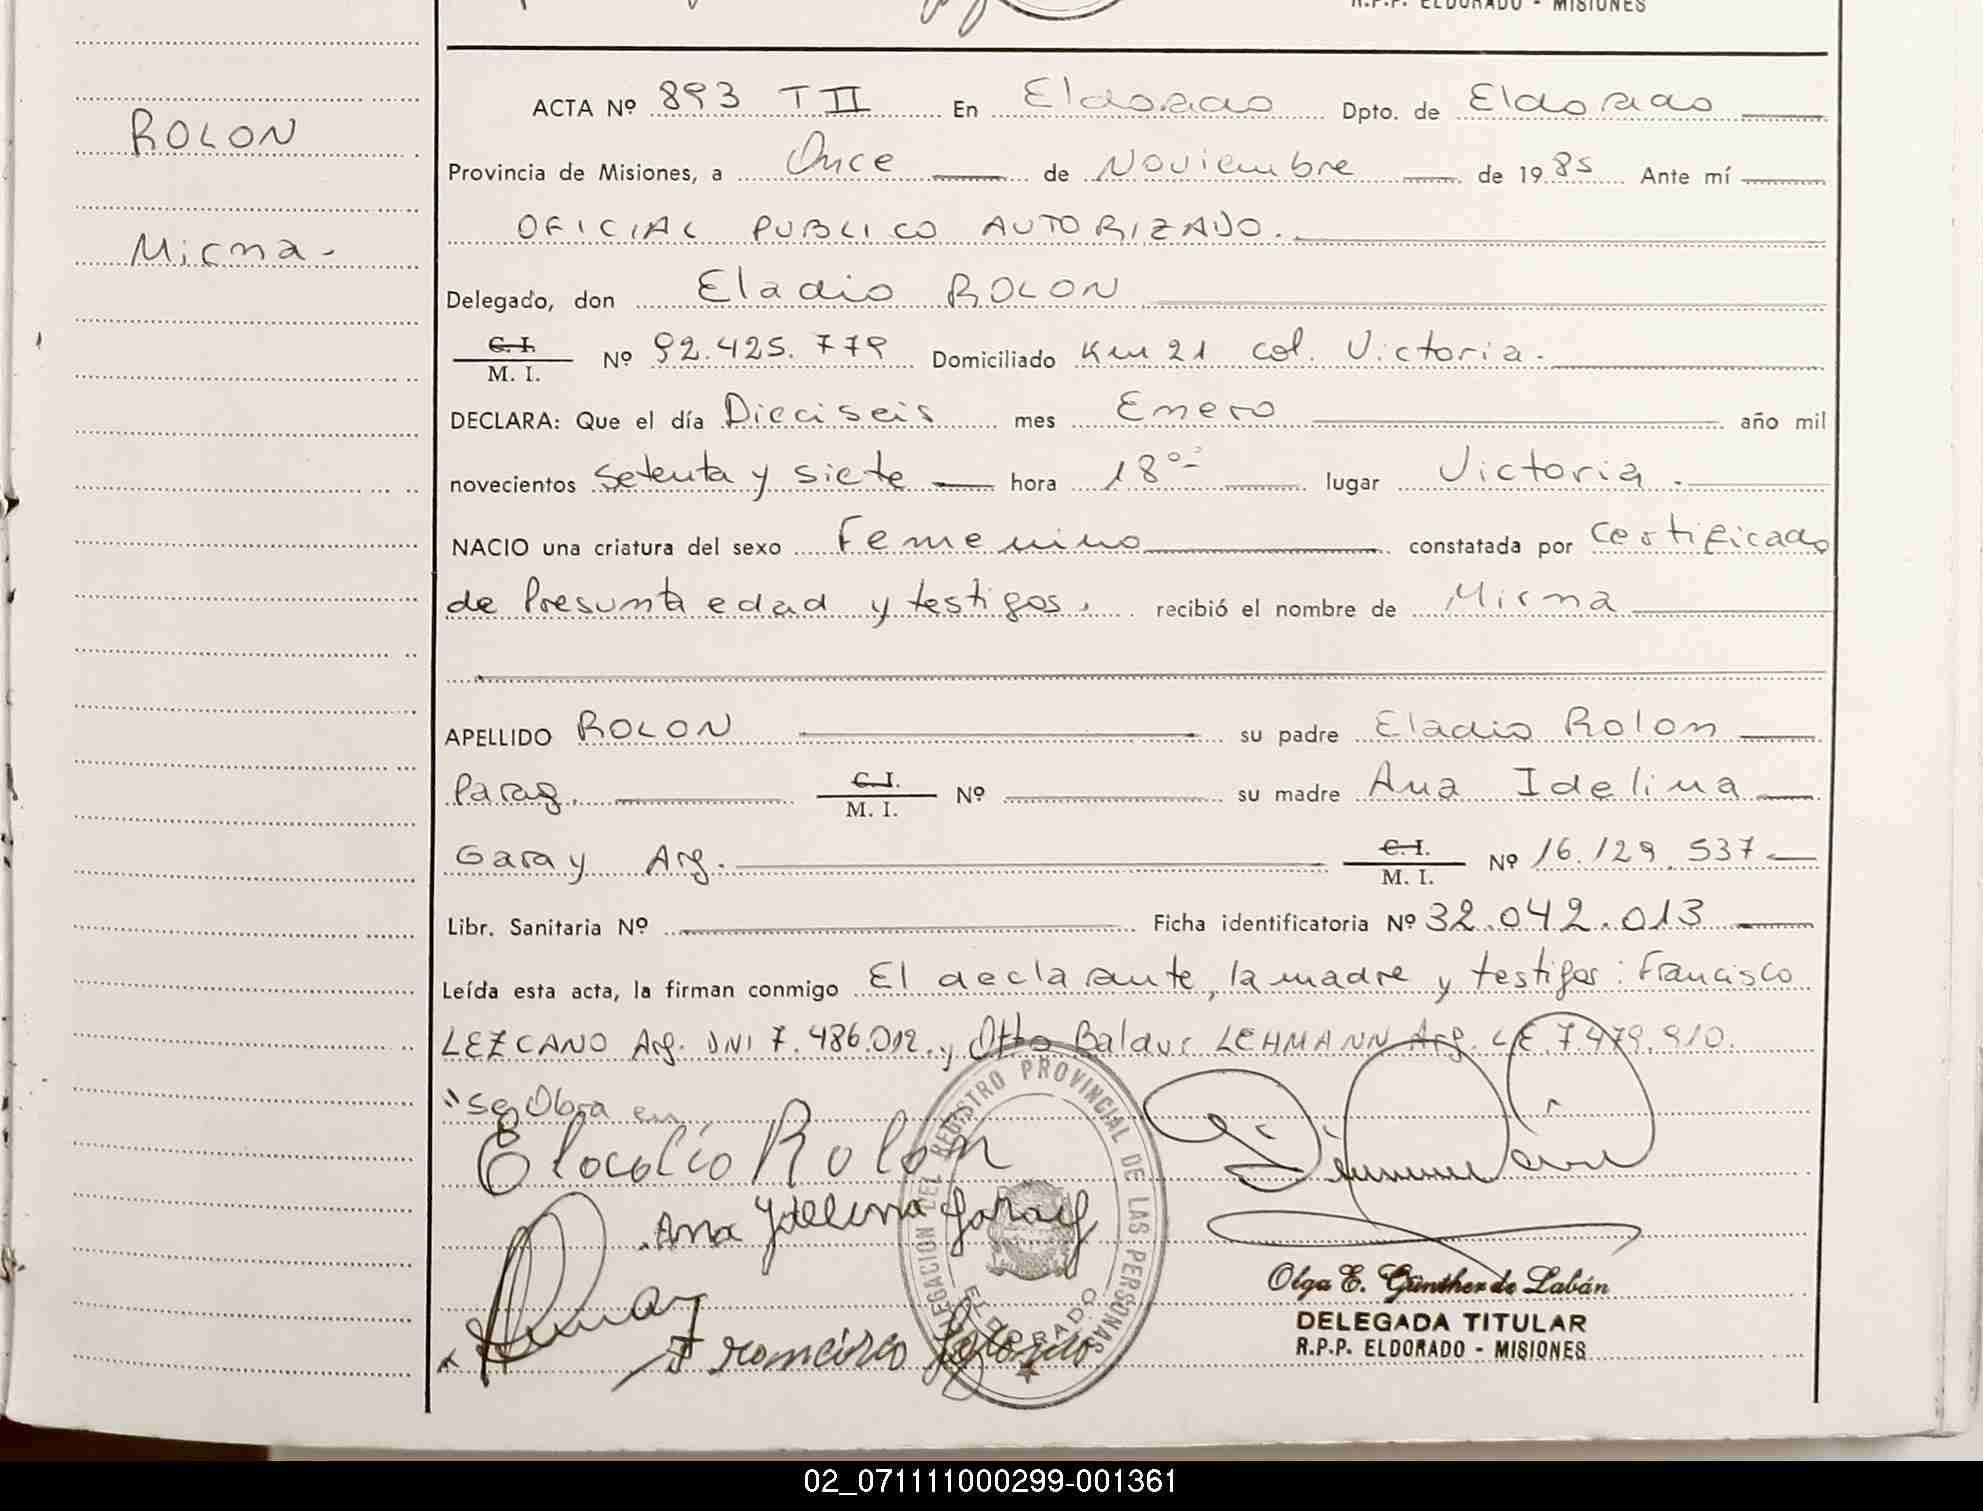 R.P.P. ELDORADO - MISIONES
ROLON
Mirna -
ACTA Nº 893 T II En Eldorado Dpto. de Eldorado
Provincia de Misiones, a Once de Noviembre de 1985 Ante mí
OFICIAL PUBLICO AUTORIZADO.
Delegado, don Eladio ROLON
C. I.
M. I. Nº 92.425.779 Domiciliado Km 21 col. Victoria.
DECLARA: Que el día Dieciseis mes Enero año mil
novecientos setenta y siete hora 18 lugar Victoria.
NACIO una criatura del sexo Femenino constatada por certificado
de Presunta edad y testigos. recibió el nombre de Mirna
APELLIDO ROLON su padre Eladio Rolon
Parag. C. I.
M. I. Nº su madre Ana Idelina
Garay Arg. C. I.
M. I. Nº 16.129.537
Libr. Sanitaria Nº Ficha identificatoria Nº 32.042.013
Leída esta acta, la firman conmigo El declarante, la madre y testigos: Francisco
LEZCANO Arg. DNI 7.486.012. y Otto Baldur LEHMANN Arg. LE 7.479.910.
"se Obra en
Elocalio Rolon
Ana Ydelina Garay
Francisco
DELEGACION DEL REGISTRO PROVINCIAL DE LAS PERSONAS
ELDORADO
Olga E. Günther de Labán
DELEGADA TITULAR
R.P.P. ELDORADO - MISIONES
02_071111000299-001361